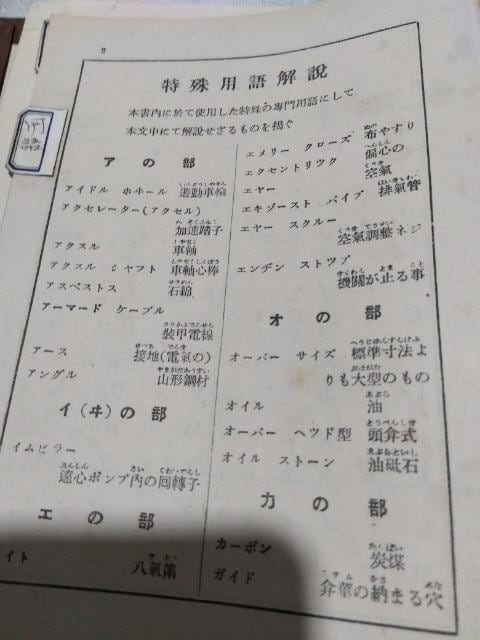 2
特殊用語解說
本書內に於て使用した特殊の專門用語にして
本文中にて解說せざるものを揭ぐ
アの部
アイドル ホヰール 遊動車輪
アクセレーター(アクセル)
加速踏子
アクスル 車軸
アクスル シヤフト 車軸心棒
アスベストス 石綿
アーマード ケーブル
裝甲電線
アース 接地(電氣の)
アングル 山形鋼材
イ(ヰ)の部
イムピラー
遠心ポンプ內の囘轉子
エの部
イト 八氣筩
エメリー クローズ 布やすり
エクセントリツク 偏心の
エヤー 空氣
エキゾースト パイプ 排氣管
エヤー スクルー
空氣調整ネジ
エンヂン ストツプ
機關が止る事
オの部
オーバー サイズ 標準寸法よ
りも大型のもの
オイル 油
オーバー ヘツド型 頭弁式
オイル ストーン 油砥石
カの部
カーボン 炭煤
ガイド の納まる穴